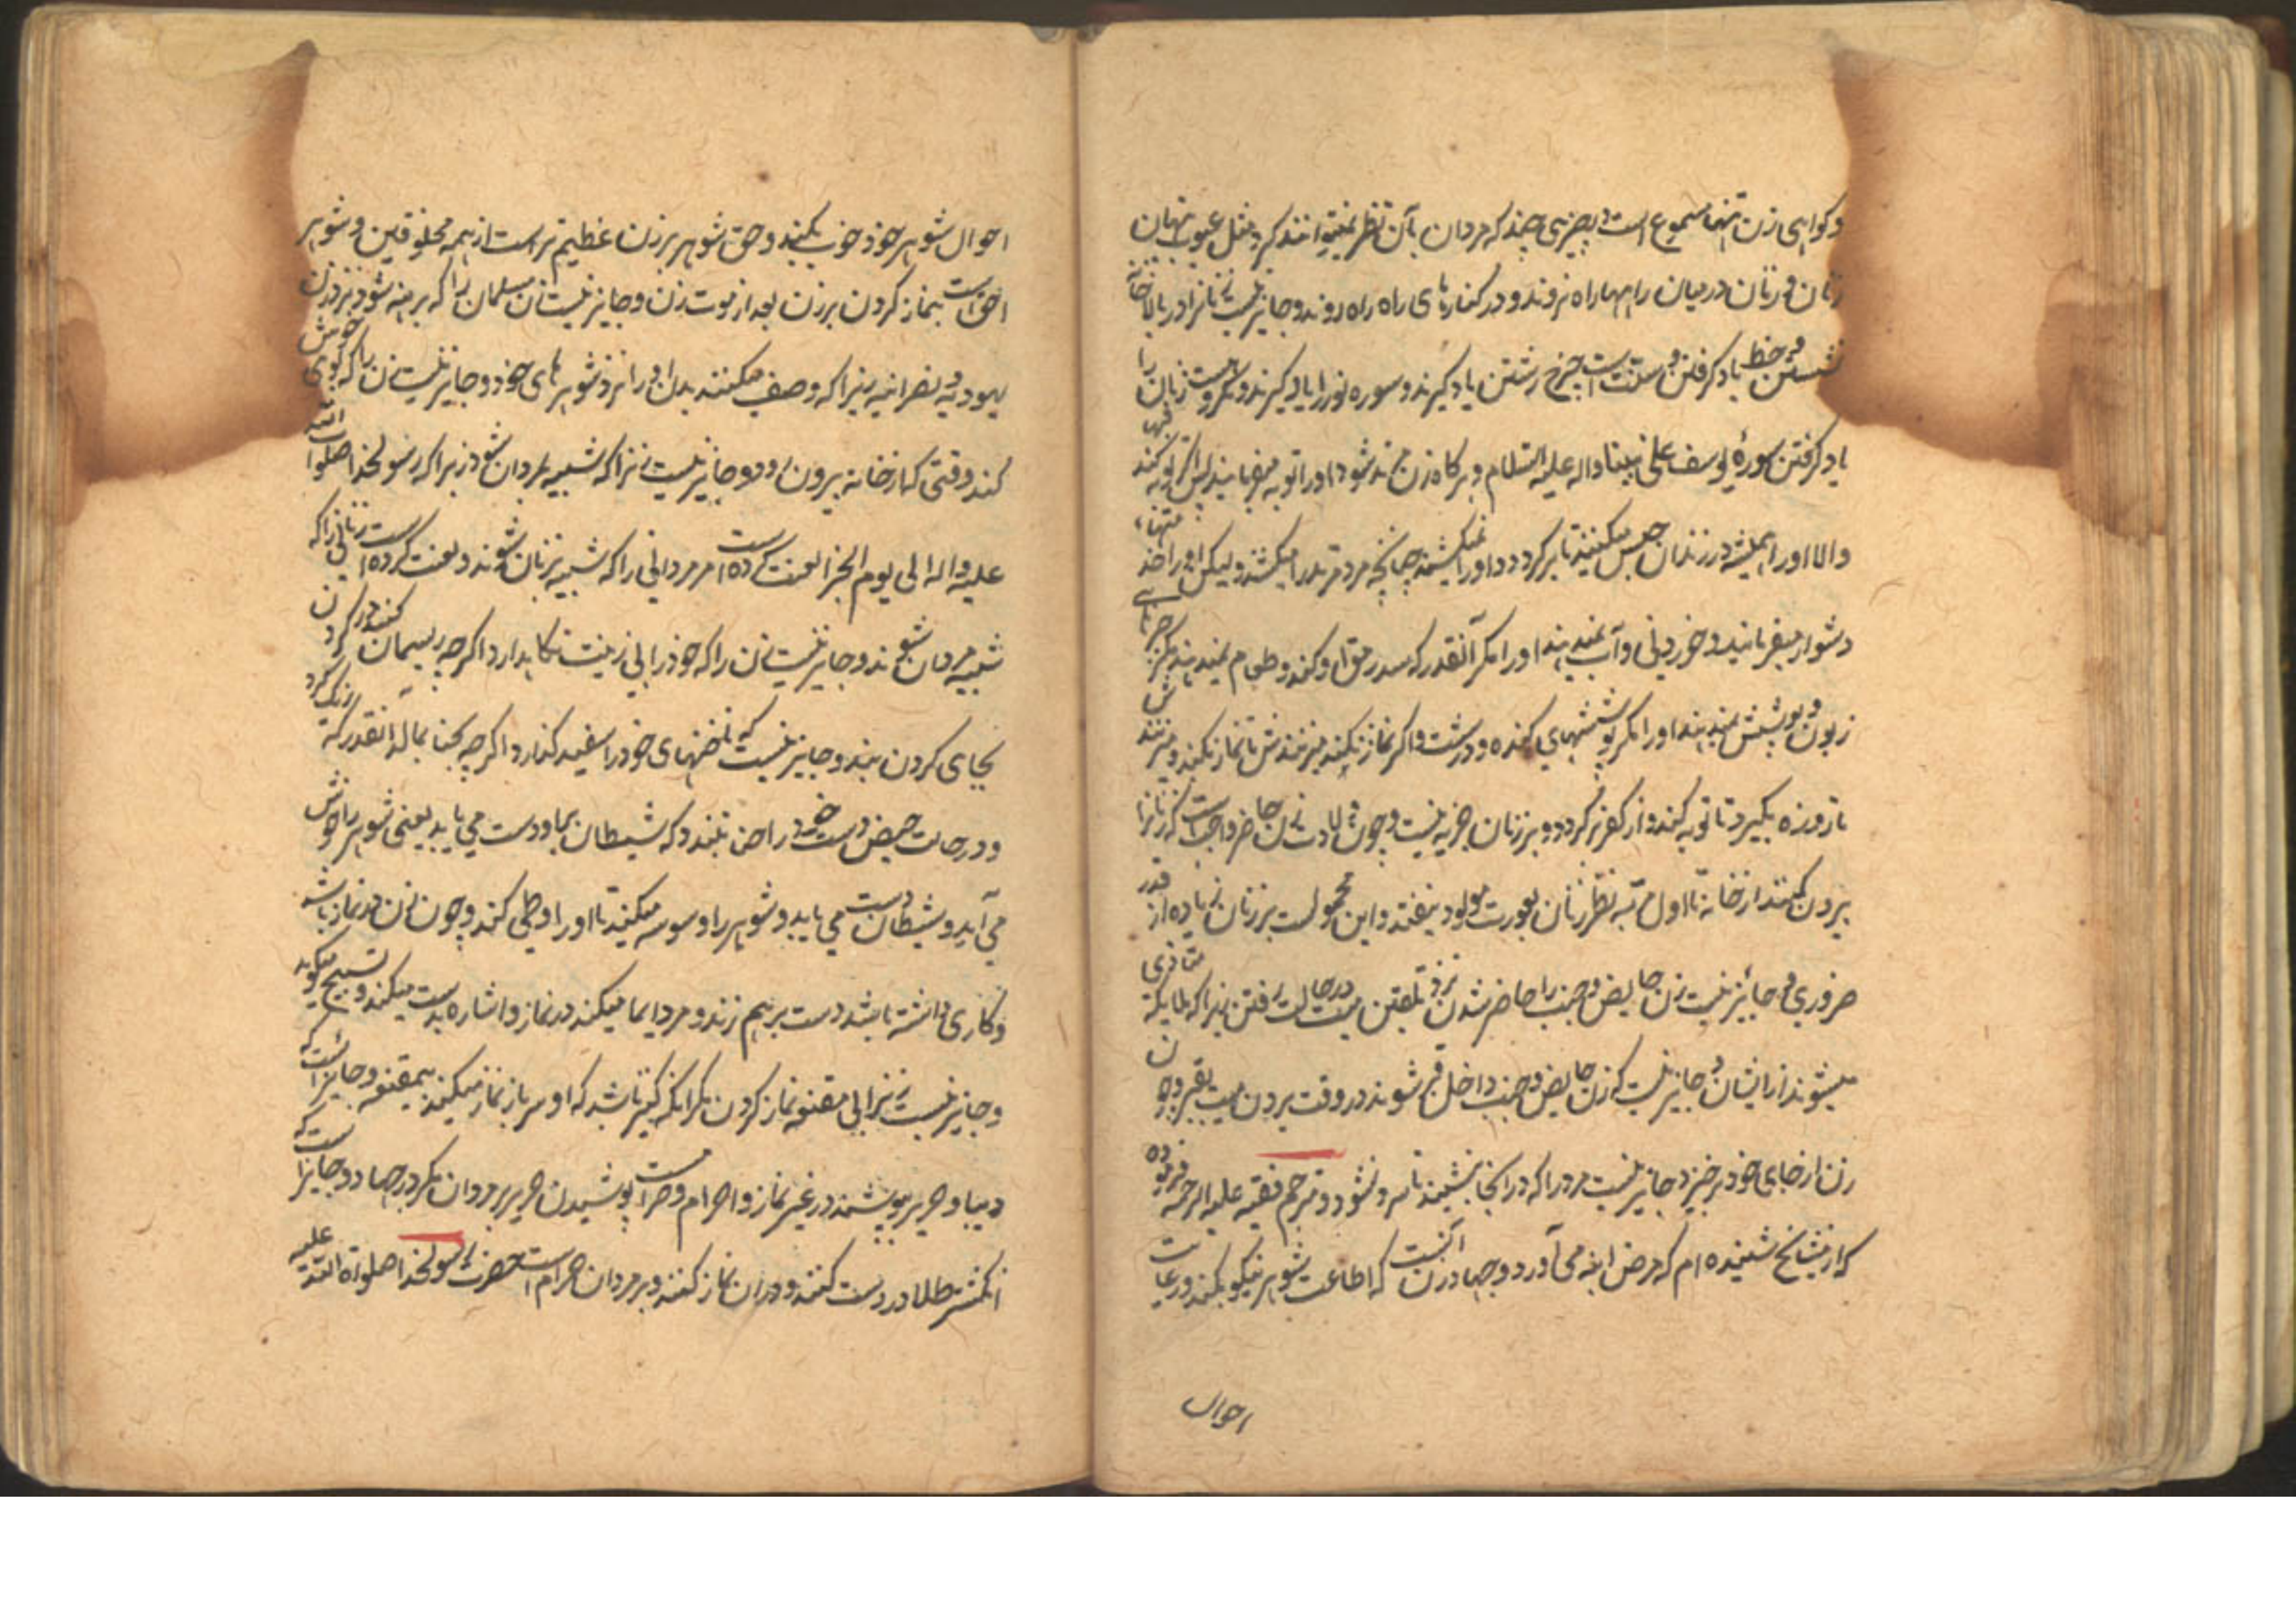 و کواهی زن تنها مسموع است در چیزی چند که مردان بآن نظر نمیتوانند کرد مثل عیوب پنهان
زنان و زنان درمیان راهها راه نروند و در کنارهای راه راه روند و جایز نیست زنانرا در بالاخانه
نشستن و خط یاد کرفتن و سنت است چرخ رشتن یاد کیرند و سوره نور را یاد کیرند و مکروهست زنان را
یاد کرفتن سورهٔ یوسف علی نبینا و اله علیه السلام و هرکاه زن مرتد شود اورا توبه میفرمایند پس اکر توبه کند فبها
والا اورا همیشه در زندان حبس میکنند تا بمیرد و اورا نمیکشند چنانچه مرد مرتد را میکشند و لیکن اورا خدمتهاء
دشوار میفرمایند و خوردنی و آب نمیدهند اورا مکر آنقدر که سد رمق او کند و طعام نمیدهند مکر چیزهای
زبون و پوشش نمیدهند اورا مکر پوششهای کنده و درشت و اکر نماز نکند میزنندش تا نماز بکند و میزنندش
تا روزه بکیرد تا توبه کند و از کفر برکردد و بر زنان جزیه نیست و چون ولادت زن حاضر شود واجبست که زنانرا
بیرون کنند از خانه تا اول مرتبه نظر زنان بعورت مولود نیفتد و این محمولست بر زنان زیاده از قدر
ضروری و جائز نیست زن حایض و جنب را حاضر شدن نزد تلقین میت در حالت رفتن زیرا که ملایکه متاذی
میشوند از ایشان و جایز نیست که زن حایض و جنب داخل قبر شوند در وقت بردن میت بقبر و چون
زن از جای خود برخیزد جایز نیست مرد را که در آنجا بنشیند تا سرد نشود و مترجم فقیه علیه الرحمه فرموده
که از مشایخ شنیده ام که مرض ابنه می آورد و جهاد زن آنست که اطاعت شوهر نیکو بکند و رعایت
احوال
احوال شوهر خود خوب بکند و حق شوهر بر زن عظیم تر است از همه مخلوقین و شوهر
احق است بنماز کردن بر زن بعد از موت زن و جایز نیست زن مسلمان را که برهنه شود نزد زن
یهودیه و نصرانیه زیرا که وصف میکنند بدن اورا نزد شوهرهای خود و جایز نیست زن را که بوی خوش
کند وقتی که از خانه بیرون رود و جایز نیست زنرا که شبیه بمردان شود زیرا که رسولخدا صلوات الله
علیه و اله الی یوم الجزا لعنت کرده است مر مردانی را که شبیه بزنان شوند و لعنت کرده است زنانی را که
شبیه مردان شوند و جایز نیست زن را که خود را بی زینت نکاهدارد اکرچه ریسمان کنند در کردن
بجای کردن بند و جایز نیست که ناخنهای خود را سفید کذارد اکرچه بحنا بمالد آنقدر که رنک کرد
و در حالت حیض دست خود را خضاب نبندد که شیطان بر او دست می یابد یعنی شوهر را خوش
می آید و شیطان دست می یابد و شوهر را وسوسه میکند تا اورا وطی کند و چون زن در نماز باشد
و کاری داشته باشد دست برهم زند و مرد ایما میکند در نماز و اشاره بدست میکند و تسبیح میکوید
و جایز نیست زنرا بی مقنعه نماز کردن مکر آنکه کنیز باشد که او سر باز نماز میکند بیمقنعه و جائز است که
دیبا و حریر بپوشند در غیر نماز و احرام و حرامست پوشیدن حریر بر مردان مکر در جهاد و جایز است که
انکشتر طلا در دست کنند و در ان نماز کنند و بر مردان حرام است حضرت رسولخدا صلواة الله علیه